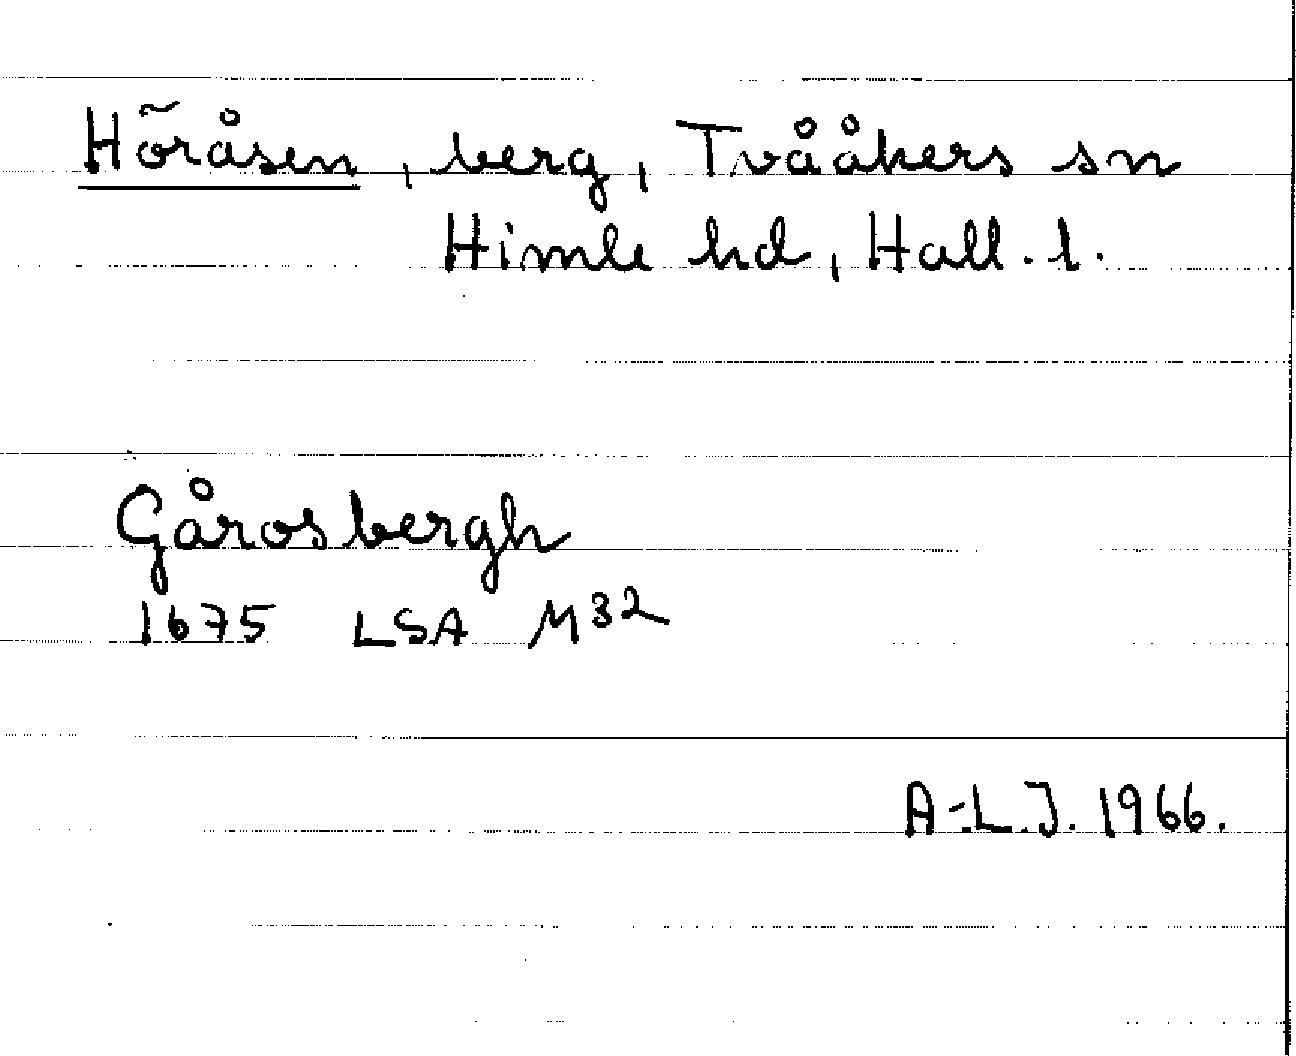 Höråsen, berg, Tvååkers sn
Himle hd, Hall. l.
Gårosbergh
1675 LSA M32
A-L.J. 1966.